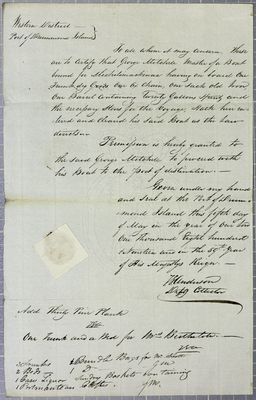 Western District
Port of Drummond Island }
To all whom it may concern These
are to Certify that George Mitchell Master of a Boat
bound for Michilimackinac having on board One
Trunk dry Goods One do them, One Sack old Iron
One Barrel Containing twenty Gallons Spirits and
the necessary Stores for the Voyage Hath here en-
tered and Cleared his said Boat as the law
directs
Permission is hereby granted to
the said George Mitchell to proceed with
his Boat to the port of destination
Given under my hand
and Seal at the Port of Drum-
mond Island this fifth day
of May in the year of our Lord
One Thousand Eight hundred
Nineteen and in the 59th year
of His Majestys Reign
Henderson
Collector
Add Thirty Pine Plank
One Trunk and a Bed for Mrs
2 Trunks
2 Beds
1 Case Liquor
Bundle Bags for
Baskets